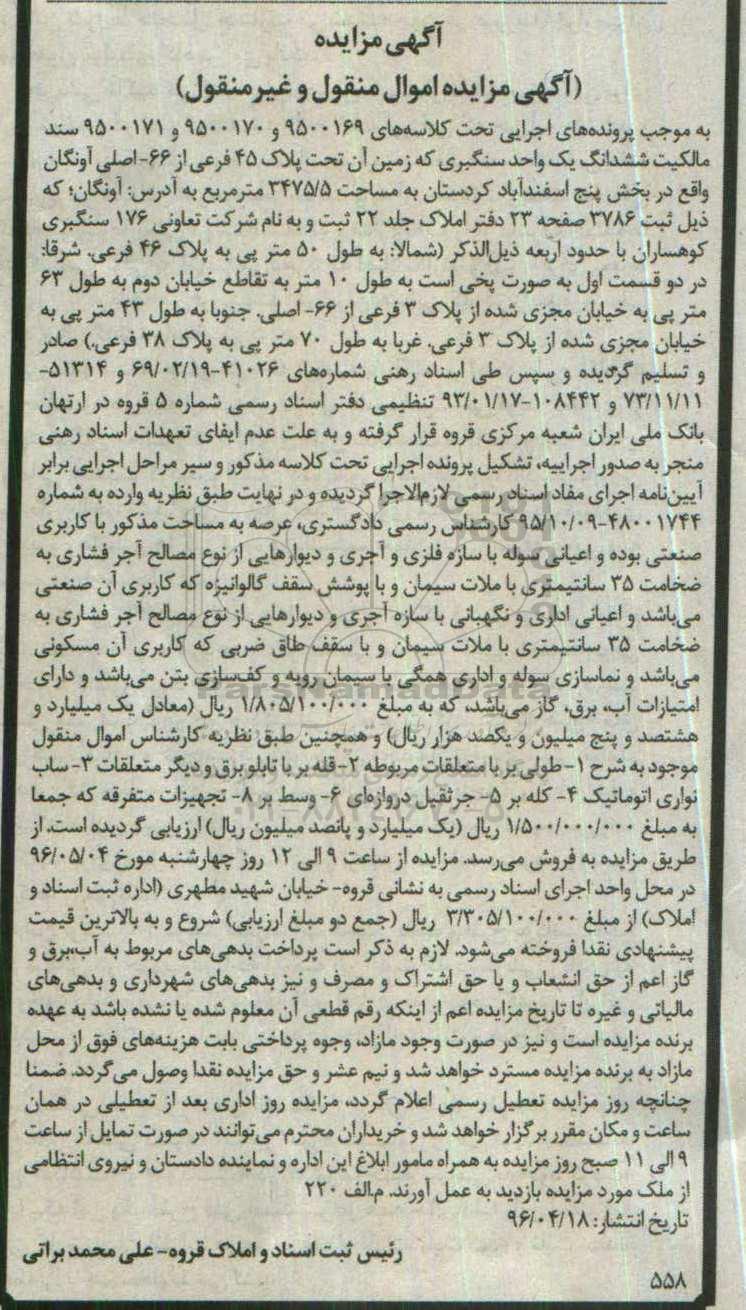 آگهی مزایده
(آگهی مزایده اموال منقول و غیرمنقول)
به موجب پرونده‌های اجرایی تحت کلاسه‌های ۹۵۰۰۱۶۹ و ۹۵۰۰۱۷۰ و ۹۵۰۰۱۷۱ سند
مالکیت ششدانگ یک واحد سنگبری که زمین آن تحت پلاک ۴۵ فرعی از ۶۶- اصلی آونگان
واقع در بخش پنج اسفندآباد کردستان به مساحت ۳۴۷۵/۵ مترمربع به آدرس: آونگان؛ که
ذیل ثبت ۳۷۸۶ صفحه ۲۳ دفتر املاک جلد ۲۲ ثبت و به نام شرکت تعاونی ۱۷۶ سنگبری
کوهساران با حدود اربعه ذیل‌الذکر (شمالا: به طول ۵۰ متر پی به پلاک ۴۶ فرعی. شرقا:
در دو قسمت اول به صورت پخی است به طول ۱۰ متر به تقاطع خیابان دوم به طول ۶۳
متر پی به خیابان مجزی شده از پلاک ۳ فرعی از ۶۶- اصلی. جنوبا به طول ۴۳ متر پی به
خیابان مجزی شده از پلاک ۳ فرعی. غربا به طول ۷۰ متر پی به پلاک ۳۸ فرعی.) صادر
و تسلیم گردیده و سپس طی اسناد رهنی شماره‌های ۴۱۰۲۶-۶۹/۰۲/۱۹ و ۵۱۳۱۴-
۷۳/۱۱/۱۱ و ۱۰۸۴۴۲-۹۳/۰۱/۱۷ تنظیمی دفتر اسناد رسمی شماره ۵ قروه در ارتهان
بانک ملی ایران شعبه مرکزی قروه قرار گرفته و به علت عدم ایفای تعهدات اسناد رهنی
منجر به صدور اجراییه، تشکیل پرونده اجرایی تحت کلاسه مذکور و سیر مراحل اجرایی برابر
آیین‌نامه اجرای مفاد اسناد رسمی لازم‌الاجرا گردیده و در نهایت طبق نظریه وارده به شماره
۴۸۰۰۱۷۴۴-۹۵/۱۰/۰۹ کارشناس رسمی دادگستری، عرصه به مساحت مذکور با کاربری
صنعتی بوده و اعیانی سوله با سازه فلزی و آجری و دیوارهایی از نوع مصالح آجر فشاری به
ضخامت ۳۵ سانتیمتری با ملات سیمان و با پوشش سقف گالوانیزه که کاربری آن صنعتی
می‌باشد و اعیانی اداری و نگهبانی با سازه آجری و دیوارهایی از نوع مصالح آجر فشاری به
ضخامت ۳۵ سانتیمتری با ملات سیمان و با سقف طاق ضربی که کاربری آن مسکونی
می‌باشد و نماسازی سوله و اداری همگی با سیمان رویه و کف‌سازی بتن می‌باشد و دارای
امتیازات آب، برق، گاز می‌باشد، که به مبلغ ۱/۸۰۵/۱۰۰/۰۰۰ ریال (معادل یک میلیارد و
هشتصد و پنج میلیون و یکصد هزار ریال) و همچنین طبق نظریه کارشناس اموال منقول
موجود به شرح ۱- طولی بر با متعلقات مربوطه ۲- قله بر با تابلو برق و دیگر متعلقات ۳- ساب
نواری اتوماتیک ۴- کله بر ۵- جرثقیل دروازه‌ای ۶- وسط بر ۸- تجهیزات متفرقه که جمعا
به مبلغ ۱/۵۰۰/۰۰۰/۰۰۰ ریال (یک میلیارد و پانصد میلیون ریال) ارزیابی گردیده است. از
طریق مزایده به فروش می‌رسد. مزایده از ساعت ۹ الی ۱۲ روز چهارشنبه مورخ ۹۶/۰۵/۰۴
در محل واحد اجرای اسناد رسمی به نشانی قروه- خیابان شهید مطهری (اداره ثبت اسناد و
املاک) از مبلغ ۳/۳۰۵/۱۰۰/۰۰۰ ریال (جمع دو مبلغ ارزیابی) شروع و به بالاترین قیمت
پیشنهادی نقدا فروخته می‌شود. لازم به ذکر است پرداخت بدهی‌های مربوط به آب،برق و
گاز اعم از حق انشعاب و یا حق اشتراک و مصرف و نیز بدهی‌های شهرداری و بدهی‌های
مالیاتی و غیره تا تاریخ مزایده اعم از اینکه رقم قطعی آن معلوم شده یا نشده باشد به عهده
برنده مزایده است و نیز در صورت وجود مازاد، وجوه پرداختی بابت هزینه‌های فوق از محل
مازاد به برنده مزایده مسترد خواهد شد و نیم عشر و حق مزایده نقدا وصول می‌گردد. ضمنا
چنانچه روز مزایده تعطیل رسمی اعلام گردد، مزایده روز اداری بعد از تعطیلی در همان
ساعت و مکان مقرر برگزار خواهد شد و خریداران محترم می‌توانند در صورت تمایل از ساعت
۹ الی ۱۱ صبح روز مزایده به همراه مامور ابلاغ این اداره و نماینده دادستان و نیروی انتظامی
از ملک مورد مزایده بازدید به عمل آورند. م‌الف ۲۲۰
تاریخ انتشار: ۹۶/۰۴/۱۸
رئیس ثبت اسناد و املاک قروه- علی محمد براتی
۵۵۸